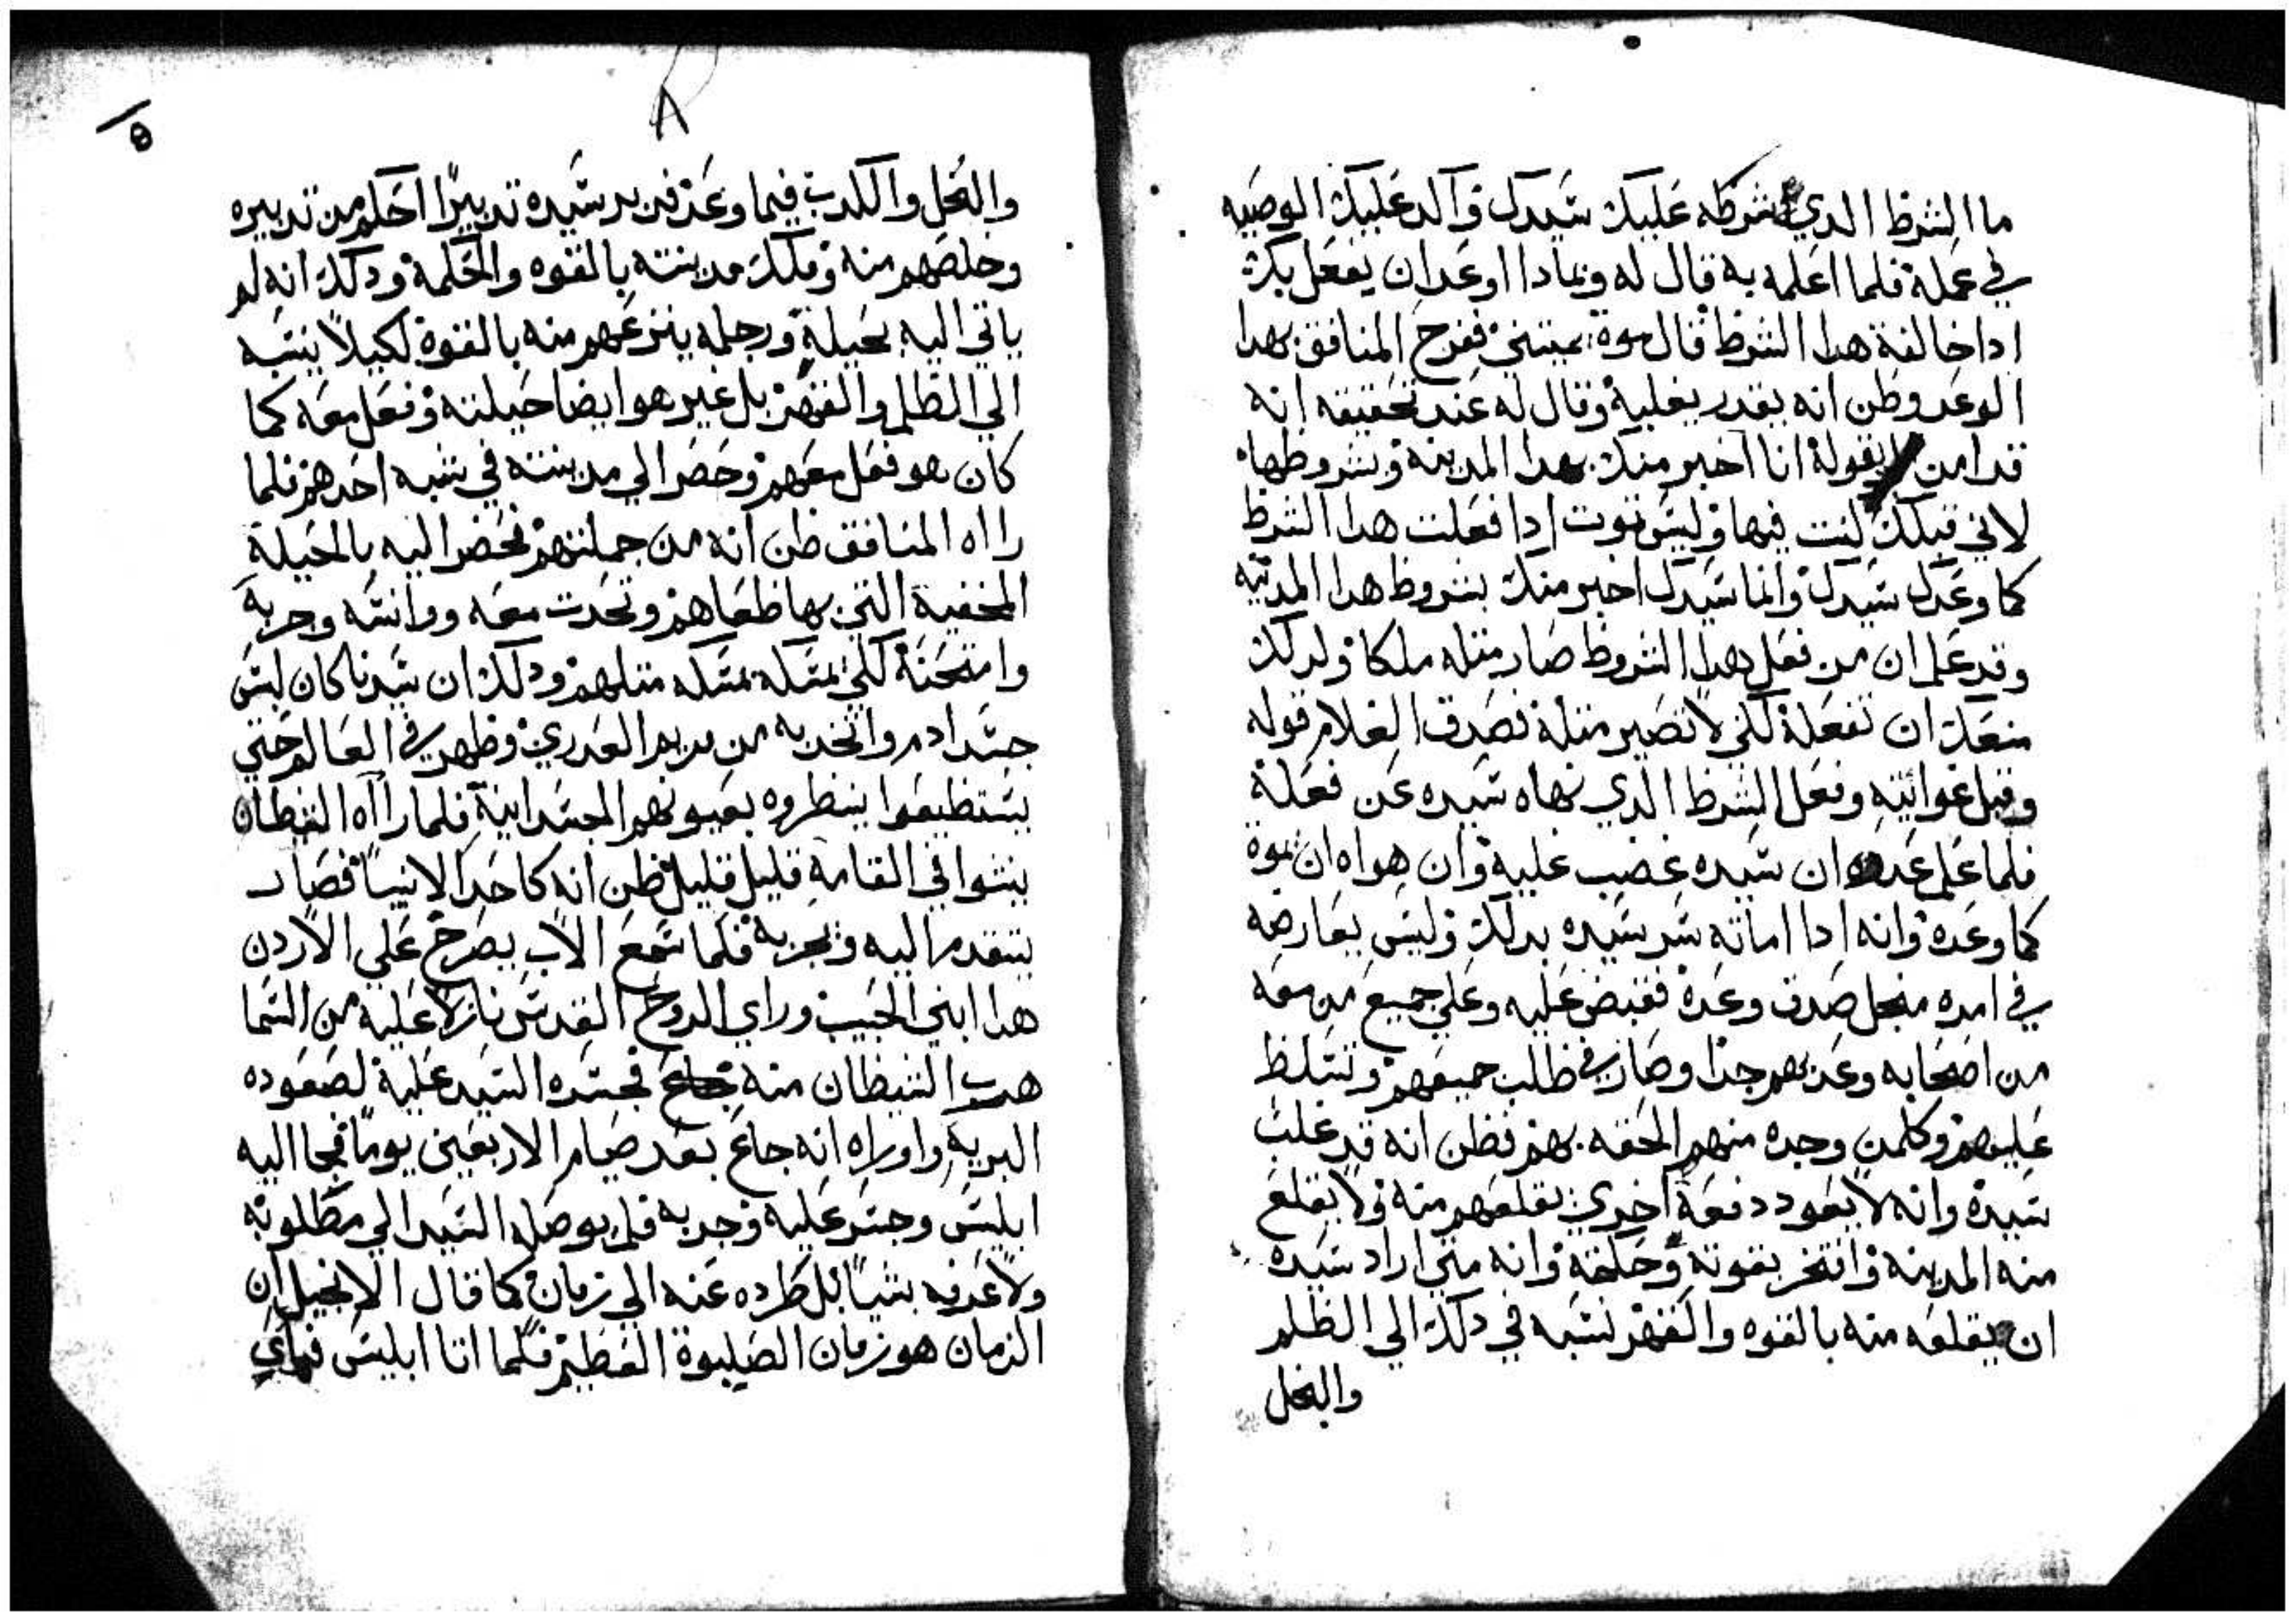 ما الشرط الدي شرطه عليك سيدك واكد عليك الوصيه
في عمله فلما اعلمه به قال له وبمادا اوعد ان يفعل بك
ادا خالفة هدا الشرط قال موة يميتني ففرح المنافق بهدا
الوعد وظن انه يقدر يغلبه وقال له عند تحقيقه انه
قد امن بقوله انا اخبر منك بهدا المدينه وشروطها
لاني قبلك كنت فيها وليس تموت ادا فعلت هدا الشرط
كما وعدك سيدك وانما سيدك اخبر منك بشروط هدا المدينه
وقد علم ان من فعل بهدا الشروط صار مثله ملكا ولدلك
منعك ان تفعله لكي لا تصير مثله فصدق الغلام قوله
وقبل غوايته وفعل الشرط الدي نهاه سيده عن فعله
فلما علم عدوه ان سيده غضب عليه وان هواه ان يموه
كما وعده وانه ادا اماته سر سيده بدلك وليس يعارضه
في امره منجل صدق وعده فقبض عليه وعلي جميع من معه
من اصحابه وعدبهم جدا وصار في طلب جميعهم وتسلط
عليهم وكلمن وجده منهم الحقه بهم فظن انه قد غلب
سيده وانه لا يعود دفعة اخري يقلعهم منه ولا يقلع
منه المدينه وافتخر بقوته وحلمه وانه متي اراد سيده
ان يقلعه منه بالقوه والقهر نسبه في دلك الي الظلم
والبخل
٨
8
والبخل والكدب فيما وعد فدبر سيده تدبيرًا احكم من تدبيره
وخلصهم منه وملك مدينته بالقوه والحكمة ودلك انه لم
ياتي اليه بخيله ورجله ينزعهم منه بالقوة لكيلا ينسبه
الي الظلم والقهر بل غير هو ايضا حيلته وفعل معه كما
كان هو فعل معهم وحضر الي مدينته في شبه احدهم فلما
رااه المنافق ظن انه من جملتهم فحضر اليه بالحيلة
المخفية التي بها طغاهم وتحدت معه ووانسه وجربه
وامتحنه لكي يمسكه بمسكه مثلهم ودلك ان سيدنا كان لبس
جسد ادم واتخد به من مريم العدري وظهر في العالم حتي
يستطيعوا ينظروه بعيونهم الجسدانية فلما رااه الشيطان
ينشوا في القامه قليل قليل ظن انه كاحد الانبيا فصار
يتقدم اليه ويجربه فلما سمع الاب يصرخ علي الاردن
هدا ابني الحبيب وراي الروح القدس نازلا عليه من السما
هرب الشيطان منه فجسره السيد عليه لصعوده
البرية واوراه انه جاع بعد صيام الاربعين يومًا فجا اليه
ابليس وجسر عليه وجربه فلم يوصله السيد الي مطلوبه
ولا عرفه بشيًا بل طرده عنه الي زمان كما قال الانجيل ان
الزمان هو زمان الصلبوة العظيم فلما اتا ابليس فراي